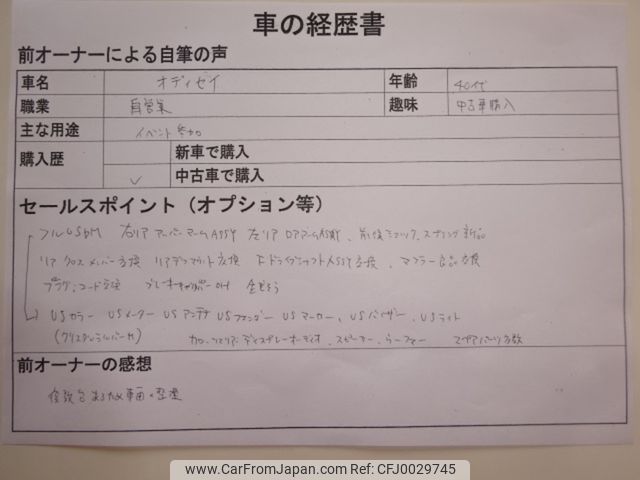 車の経歴書
前オーナーによる自筆の声
車名 オデッセイ 年齢 40代
職業 自営業 趣味 中古車購入
主な用途 イベント参加
購入歴 新車で購入
✓ 中古車で購入
セールスポイント（オプション等）
フルUSDM 右リア アーム ASSY 左リア ASSY、前後ショック、スプリング新品
リア クロスメンバー交換 リアデフマウント交換 ドライブシャフトASSY交換、マフラー良品交換
プラグ、コード交換 ブレーキキャリパーOH
USカラー USメーター USアンテナ USフェンダー USマーカー、USバイザー、USライト
カロッツェリア ディスプレーオーディオ、スピーカー、ウーファー スペアパーツ多数
前オーナーの感想
車両
www.CarFromJapan.com CFJ00029745